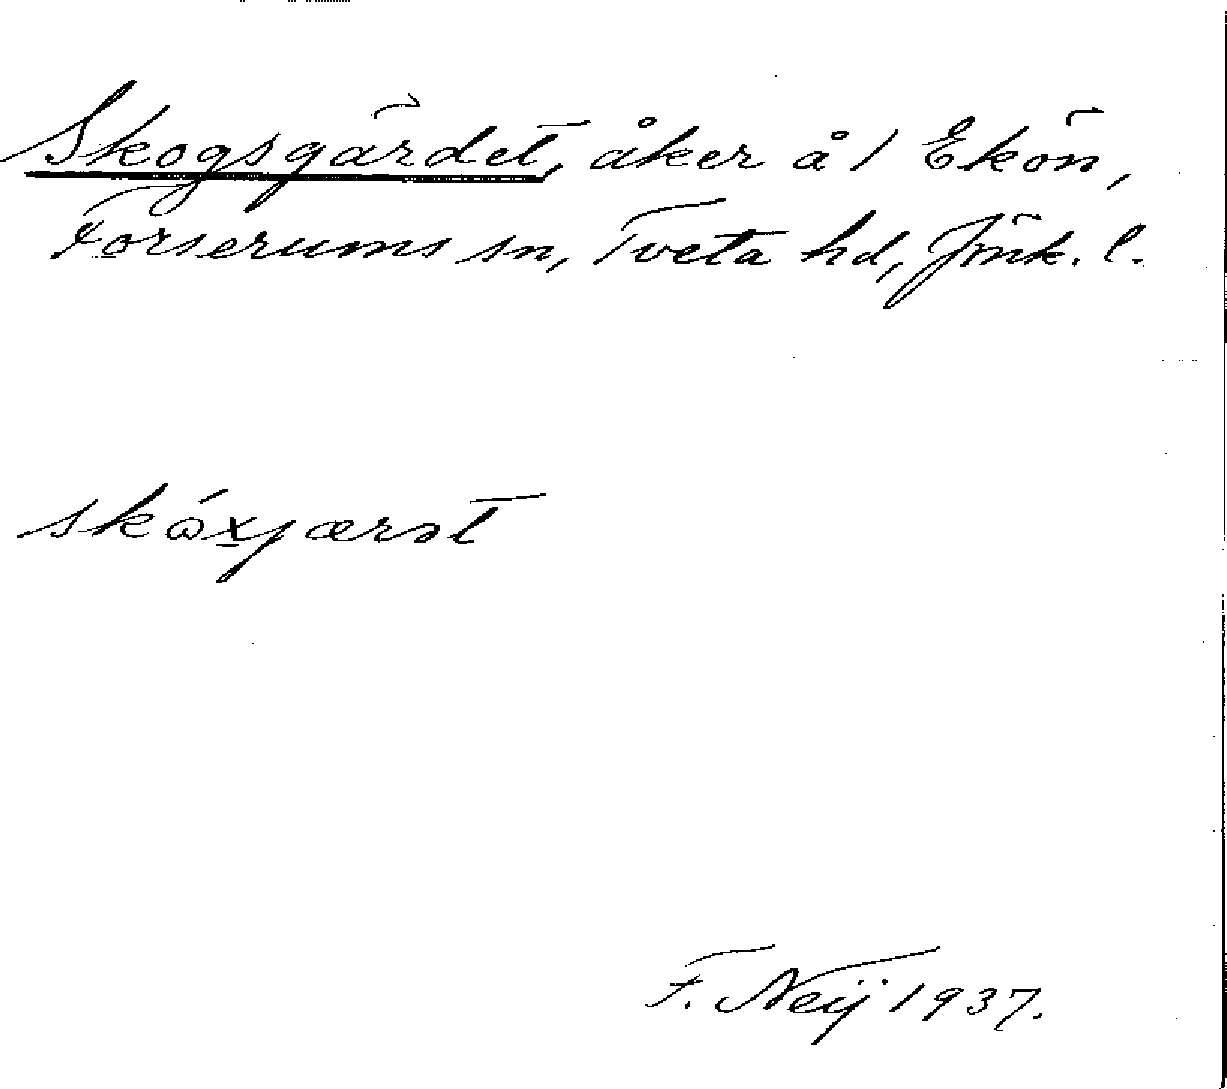 Skogsgärdet, åker å 1 Ekön,
Forserums sn, Tveta hd, Jönk. l.
skóxjærət
F. Neij 1937.